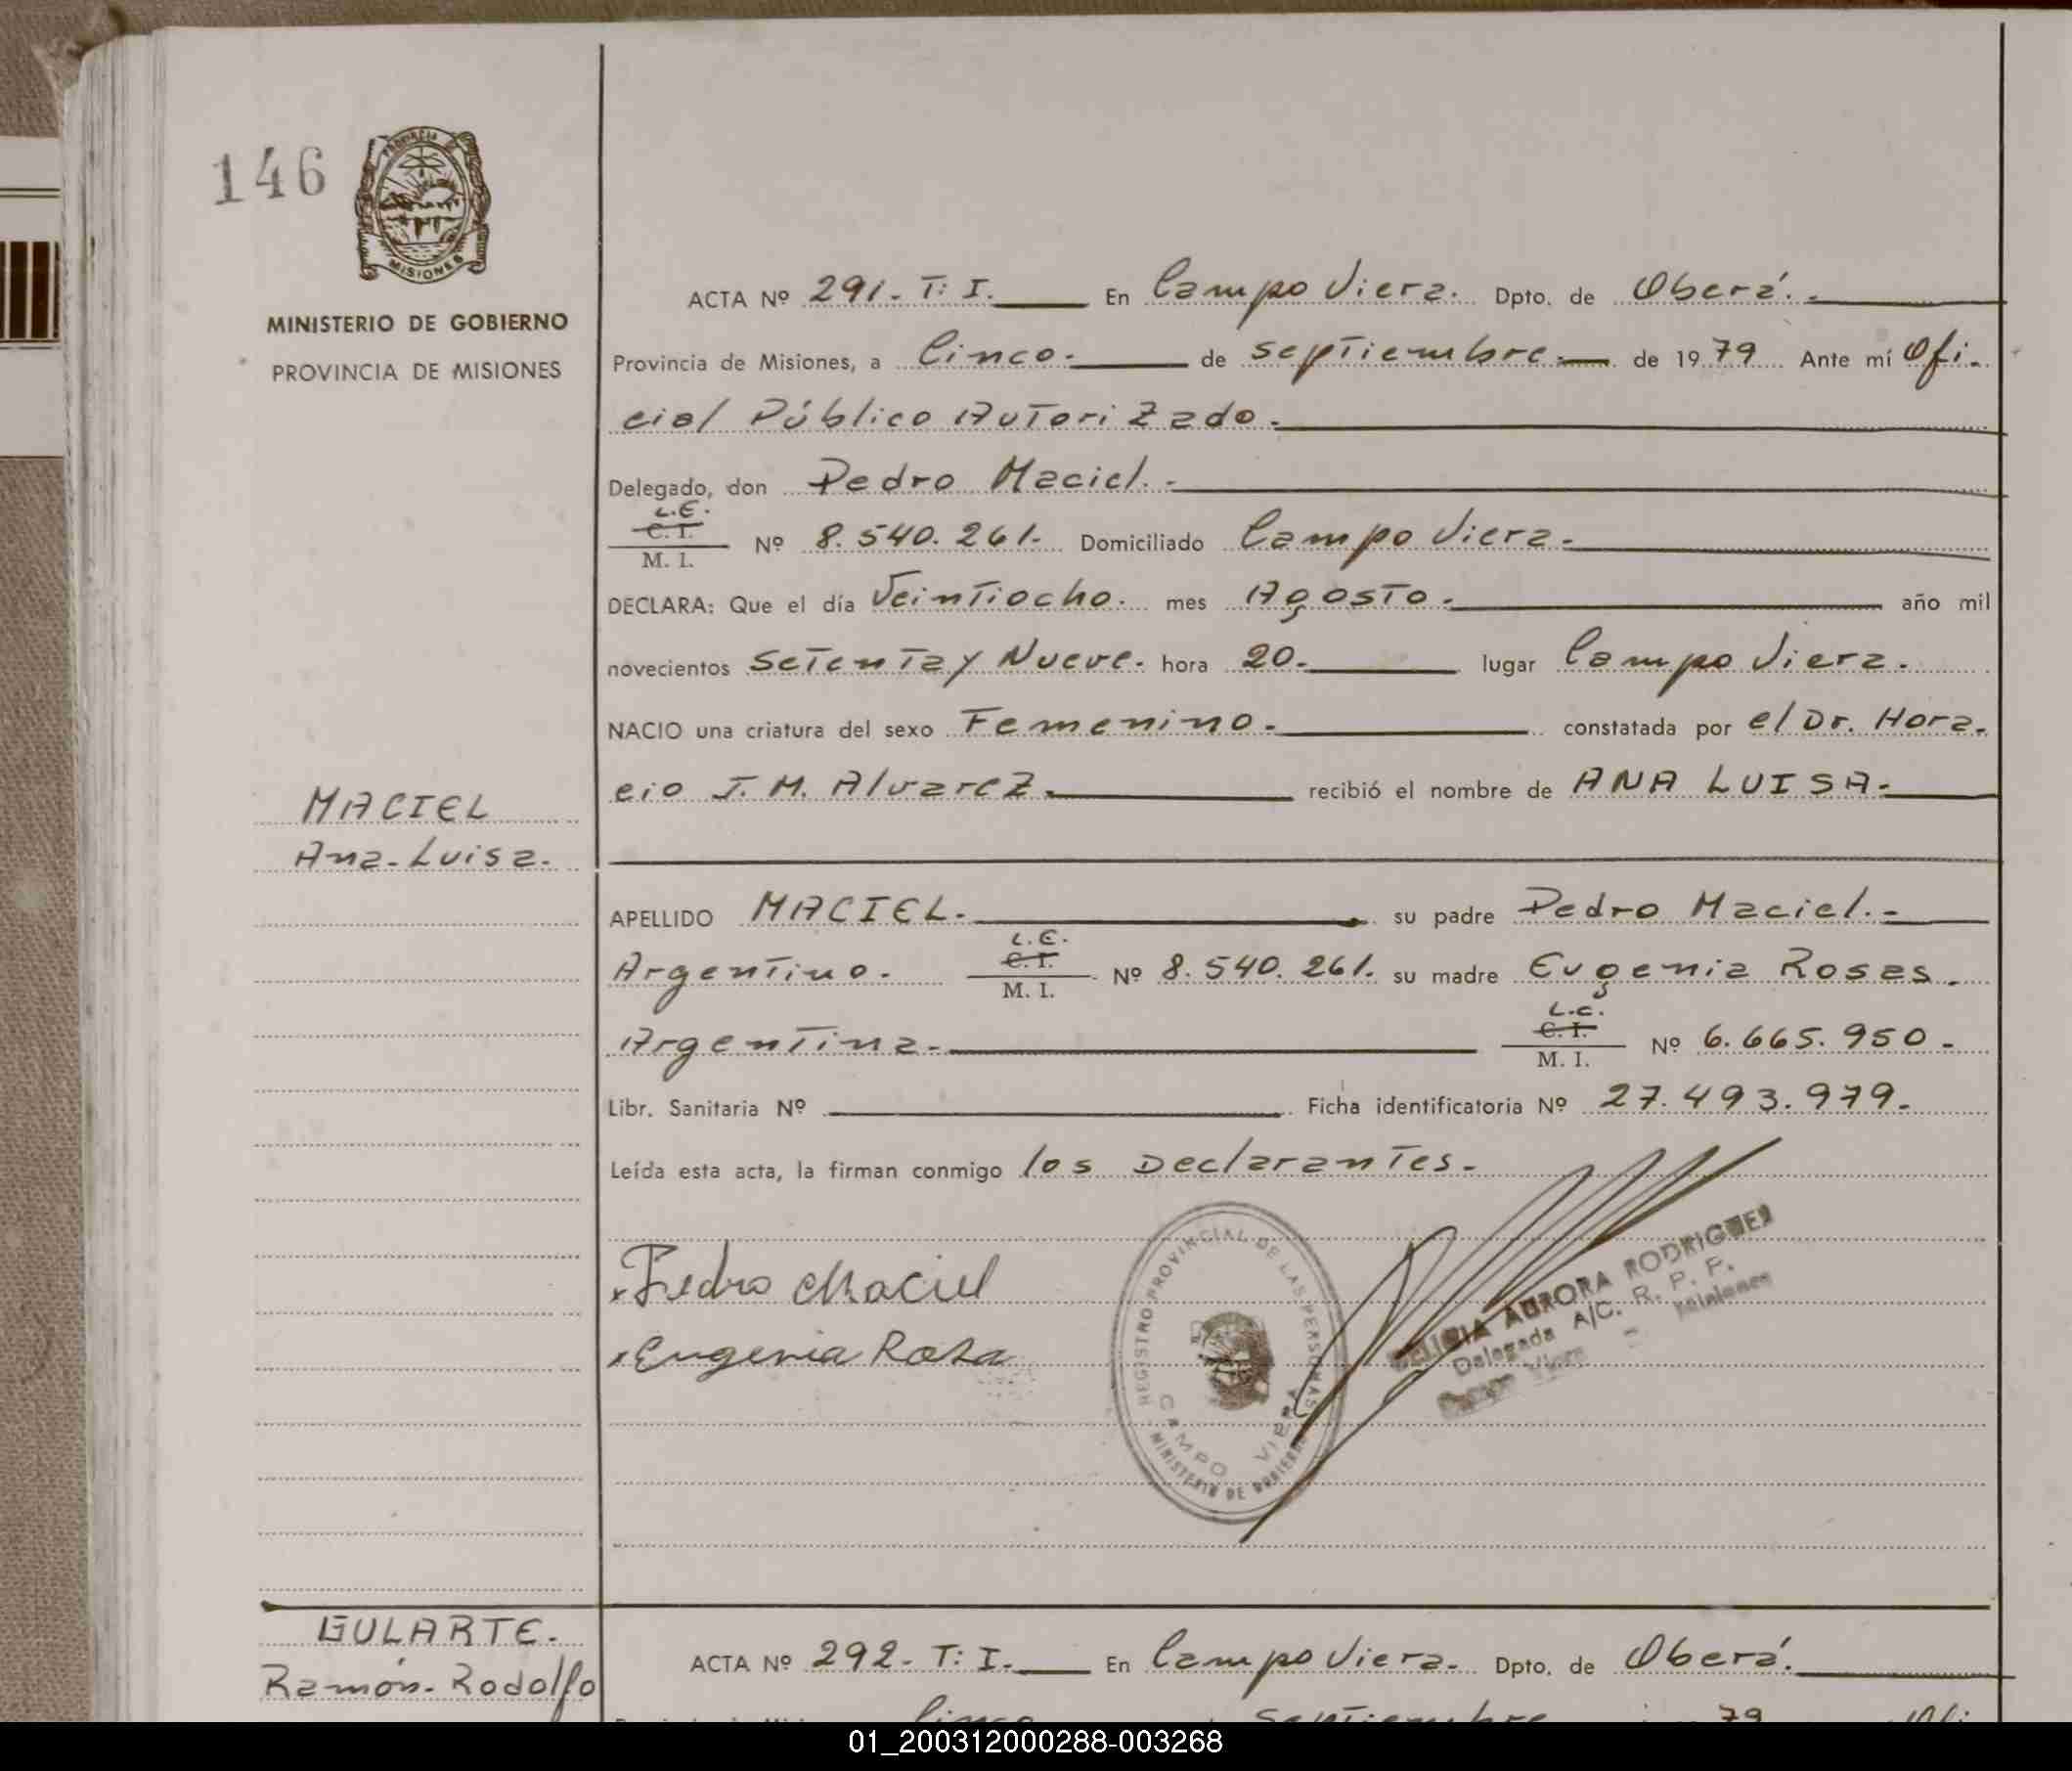 146
PROVINCIA
MISIONES
MINISTERIO DE GOBIERNO
PROVINCIA DE MISIONES
ACTA Nº 291. T: I. En Campo Viera. Dpto. de Oberá.
Provincia de Misiones, a Cinco. de septiembre. de 1979 Ante mí Ofi-
cial Público Autorizado.
Delegado, don Pedro Maciel.
L.E.
C. I.
M. I.
Nº 8.540.261. Domiciliado Campo Viera.
DECLARA: Que el día Veintiocho. mes Agosto. año mil
novecientos Setenta y Nueve. hora 20. lugar Campo Viera.
NACIO una criatura del sexo Femenino. constatada por el Dr. Hora-
cio J. M. Alvarez. recibió el nombre de ANA LUISA.
MACIEL
Ana-Luisa.
APELLIDO MACIEL. su padre Pedro Maciel.
Argentino. L.E. C. I. M. I. Nº 8.540.261. su madre Eugenia Rosas.
Argentina. L.C. C. I. M. I. Nº 6.665.950.
Libr. Sanitaria Nº Ficha identificatoria Nº 27.493.979.
Leída esta acta, la firman conmigo los Declarantes.
Pedro Maciel
Eugenia Rosa
REGISTRO PROVINCIAL DE LAS PERSONAS
CAMPO VIERA
MINISTERIO DE GOBIERNO
AURORA RODRIGUEZ
Delegada A/C. R. P. P.
Viera Misiones
GULARTE.
Ramón-Rodolfo
ACTA Nº 292. T: I. En Campo Viera. Dpto. de Oberá.
Cinco septiembre 79 Ofi
01_200312000288-003268